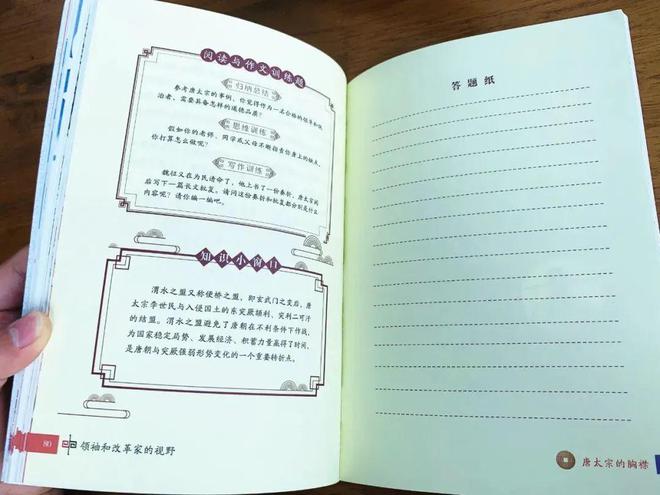 阅读与作文训练题
归纳总结
参考唐太宗的事例，你觉得作为一名合格的领导和统
治者，需要具备怎样的道德品质？
思维训练
假如你的老师、同学或父母不断指责你身上的缺点，
你打算怎么做呢？
写作训练
魏征又在为民请命了，他上书了一份奏折，唐太宗阅
后写下一篇长文批复。请问这份奏折和批复都分别是什么
内容呢？请你编一编吧。
知识小窗口
渭水之盟又称便桥之盟，即玄武门之变后，唐
太宗李世民与入侵国土的东突厥颉利、突利二可汗
的结盟。渭水之盟避免了唐朝在不利条件下作战，
为国家稳定局势、发展经济、积蓄力量赢得了时间，
是唐朝与突厥强弱形势变化的一个重要转折点。
80
领袖和改革家的视野
答题纸
唐太宗的胸襟